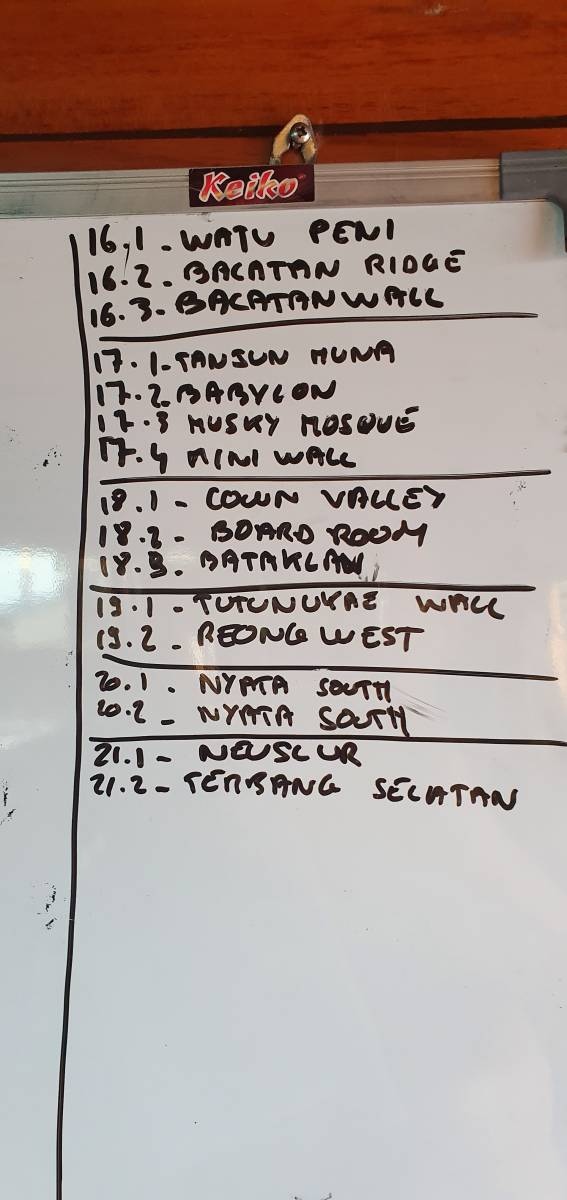 Keiko
16.1 - WATU PENI
16.2 - BACATAN RIDGE
16.3 - BACATAN WALL
17.1 - TANJUN MUNA
17.2 - BABYLON
17.3 MUSKY MOSQUÉ
17.4 MINI WALL
18.1 - COWN VALLEY
18.2 - BOARD ROOM
18.3 - BATAKLAN
19.1 - WALL
19.2 - REONG WEST
20.1 - NYATA SOUTH
20.2 - NYATA SOUTH
21.1 - NEUSLUR
21.2 - TERBANG SELATAN